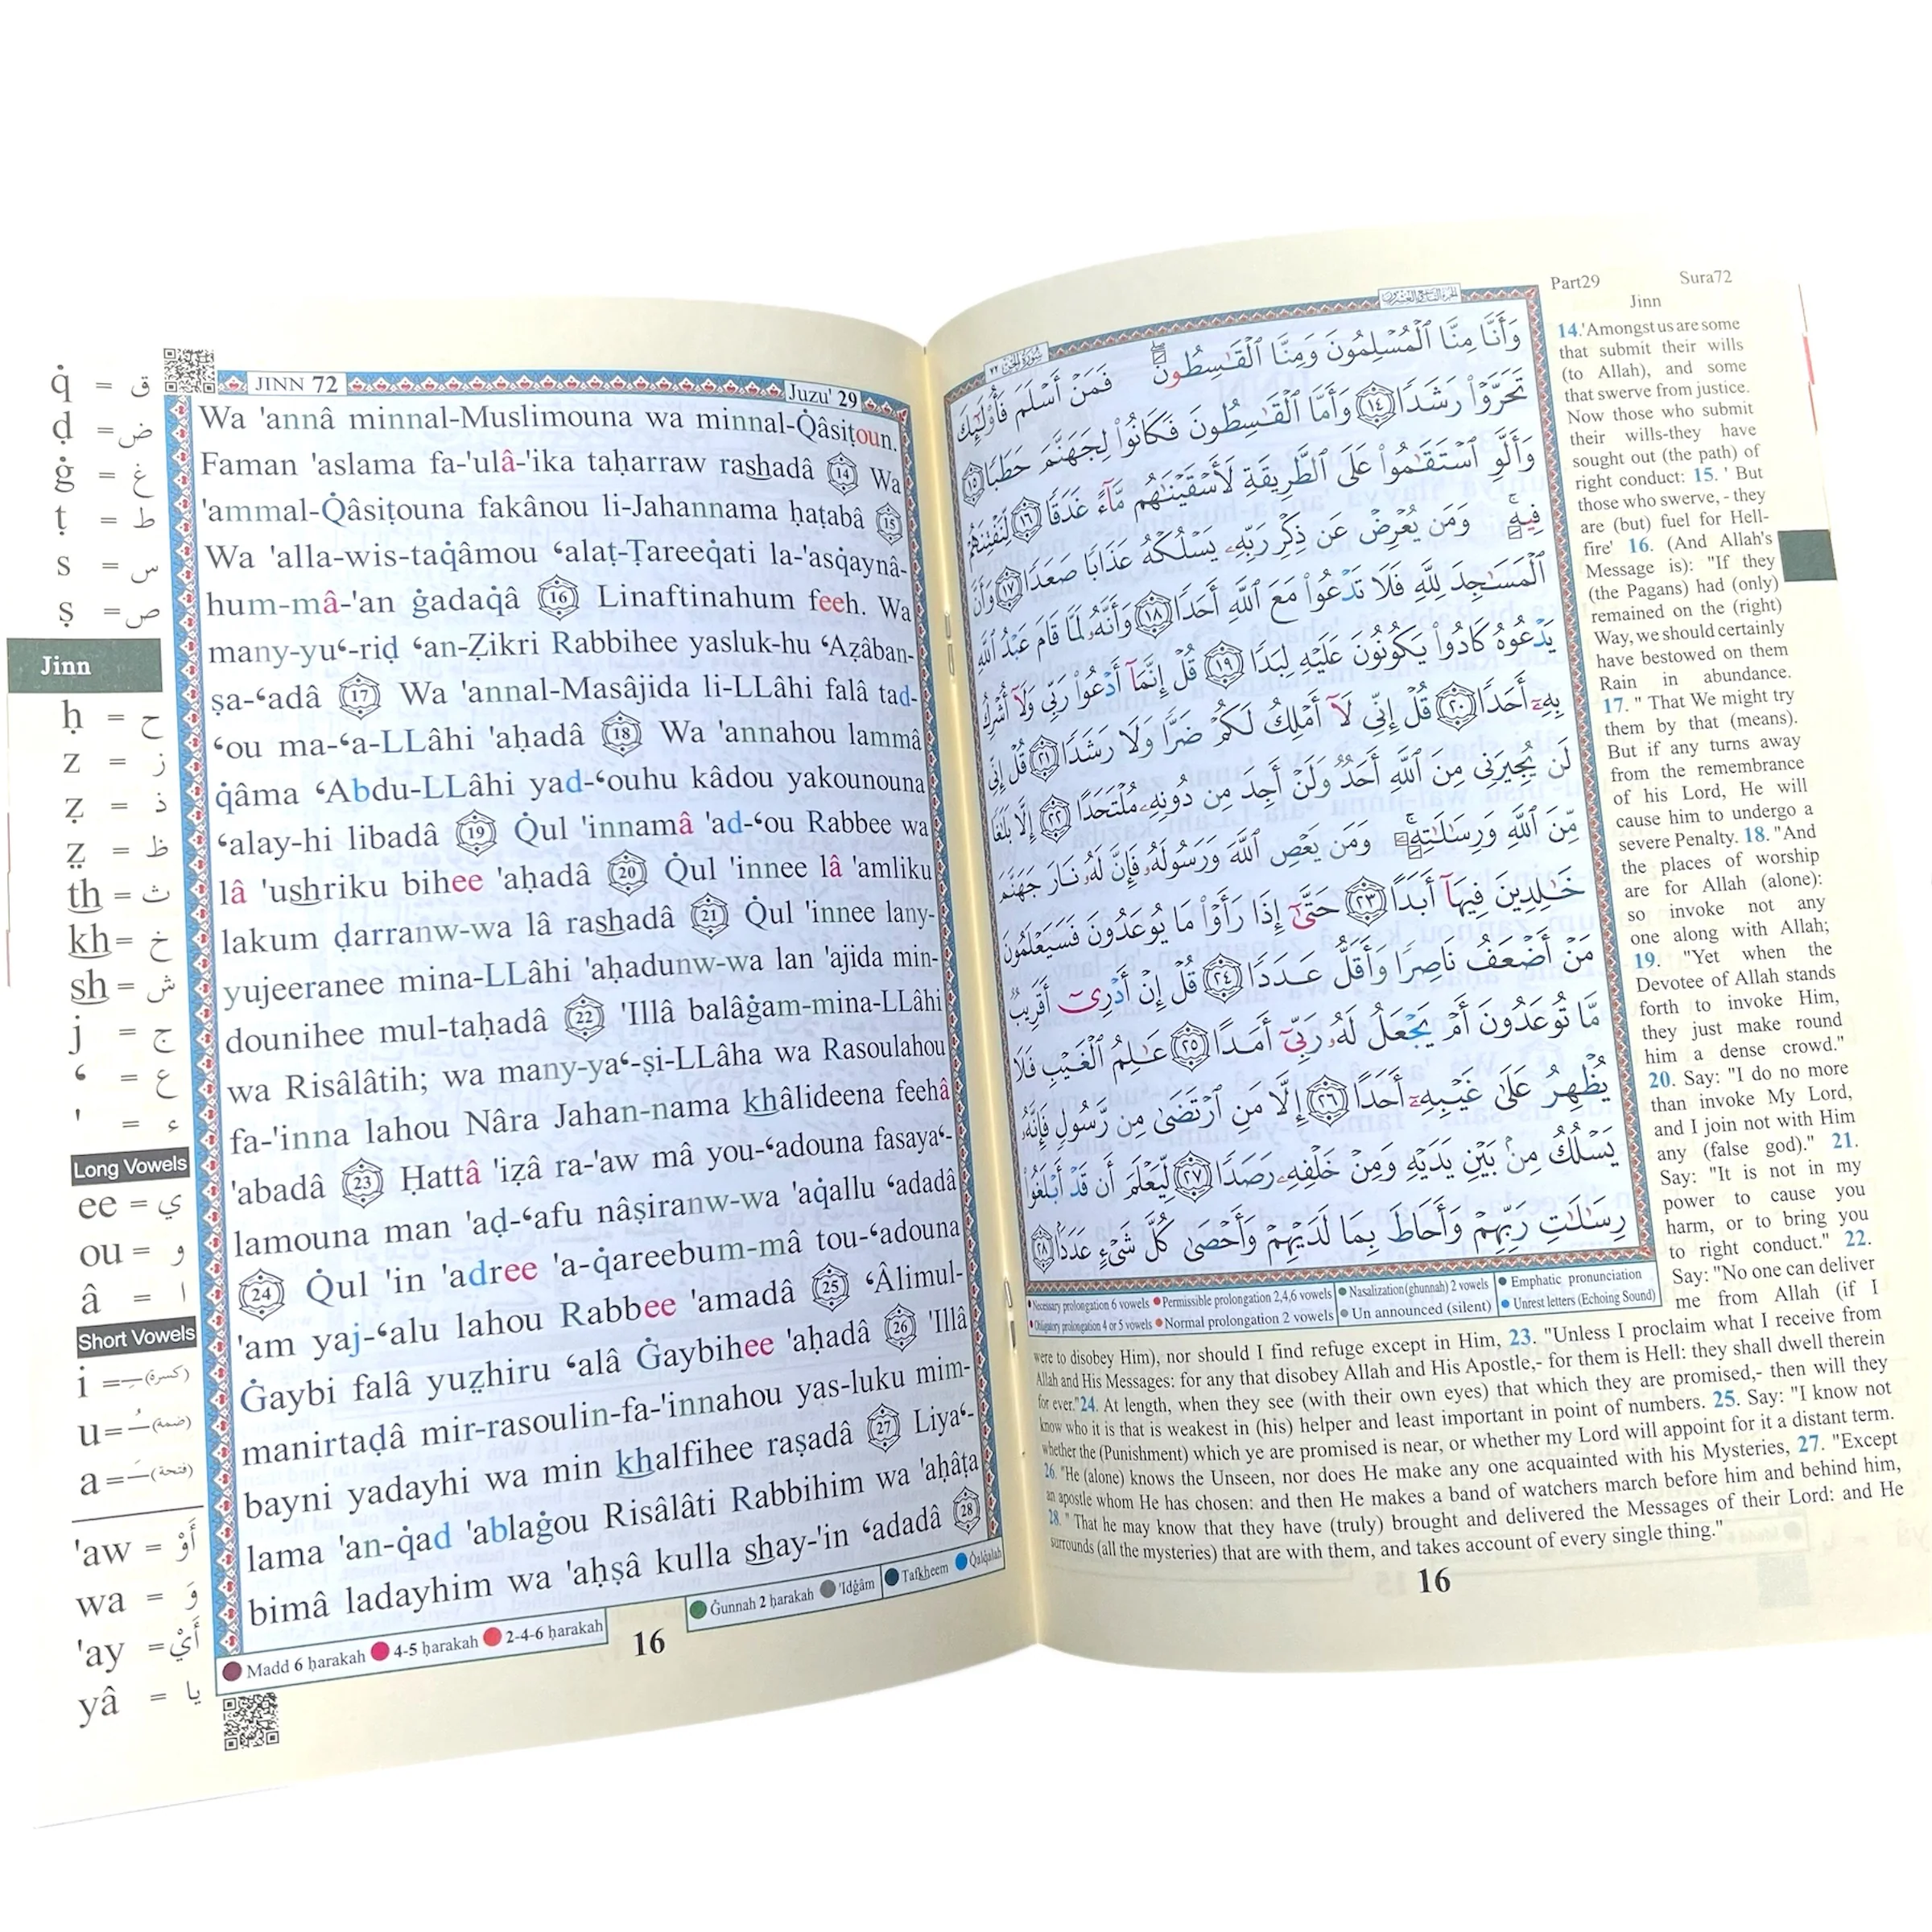 q̇ = ق
ḍ = ض
ġ = غ
ṭ = ط
s = س
ṣ = ص
Jinn
ḥ = ح
z = ز
ẓ = ذ
ẓ̤ = ظ
th = ث
kh = خ
sh = ش
j = ج
ʻ = ع
' = ء
Long Vowels
ee = ي
ou = و
â = ا
Short Vowels
i = ـِ (كسرة)
u = ـُ (ضمة)
a = ـَ (فتحة)
'aw = أَوْ
wa = وَ
'ay = أَيْ
yâ = يا
JINN 72
Juzu' 29
Wa 'annâ minnal-Muslimouna wa minnal-Q̇âsiṭoun.
Faman 'aslama fa-'ulâ-'ika taḥarraw rashadâ 14 Wa
'ammal-Q̇âsiṭouna fakânou li-Jahannama ḥaṭabâ 15
Wa 'alla-wis-taq̇âmou ʻalaṭ-Ṭareeq̇ati la-'asq̇aynâ-
hum-mâ-'an ġadaq̇â 16 Linaftinahum feeh. Wa
many-yuʻ-riḍ ʻan-Ẓikri Rabbihee yasluk-hu ʻAẓâban-
ṣa-ʻadâ 17 Wa 'annal-Masâjida li-LLâhi falâ tad-
ʻou ma-ʻa-LLâhi 'aḥadâ 18 Wa 'annahou lammâ
q̇âma ʻAbdu-LLâhi yad-ʻouhu kâdou yakounouna
ʻalay-hi libadâ 19 Q̇ul 'innamâ 'ad-ʻou Rabbee wa
lâ 'ushriku bihee 'aḥadâ 20 Q̇ul 'innee lâ 'amliku
lakum ḍarranw-wa lâ rashadâ 21 Q̇ul 'innee lany-
yujeeranee mina-LLâhi 'aḥadunw-wa lan 'ajida min-
dounihee mul-taḥadâ 22 'Illâ balâġam-mina-LLâhi
wa Risâlâtih; wa many-yaʻ-ṣi-LLâha wa Rasoulahou
fa-'inna lahou Nâra Jahan-nama khâlideena feehâ
'abadâ 23 Ḥattâ 'iẓâ ra-'aw mâ you-ʻadouna fasayaʻ-
lamouna man 'aḍ-ʻafu nâṣiranw-wa 'aq̇allu ʻadadâ
24 Q̇ul 'in 'adree 'a-q̇areebum-mâ tou-ʻadouna
'am yaj-ʻalu lahou Rabbee 'amadâ 25 ʻÂlimul-
Ġaybi falâ yuẓ̤hiru ʻalâ Ġaybihee 'aḥadâ 26 'Illâ
manirtaḍâ mir-rasoulin-fa-'innahou yas-luku mim-
bayni yadayhi wa min khalfihee raṣadâ 27 Liyaʻ-
lama 'an-q̇ad 'ablaġou Risâlâti Rabbihim wa 'aḥâṭa
bimâ ladayhim wa 'aḥṣâ kulla shay-'in ʻadadâ 28
Madd 6 ḥarakah 4-5 ḥarakah 2-4-6 ḥarakah
16
Ġunnah 2 ḥarakah 'Idġâm Tafkheem Q̇alq̇alah
سورة الجن ٧٢
الجزء التاسع والعشرون
وَأَنَّا مِنَّا ٱلْمُسْلِمُونَ وَمِنَّا ٱلْقَٰسِطُونَ فَمَنْ أَسْلَمَ فَأُو۟لَٰٓئِكَ
تَحَرَّوْا۟ رَشَدًا ١٤ وَأَمَّا ٱلْقَٰسِطُونَ فَكَانُوا۟ لِجَهَنَّمَ حَطَبًا ١٥
وَأَلَّوِ ٱسْتَقَٰمُوا۟ عَلَى ٱلطَّرِيقَةِ لَأَسْقَيْنَٰهُم مَّآءً غَدَقًا ١٦ لِّنَفْتِنَهُمْ
فِيهِ وَمَن يُعْرِضْ عَن ذِكْرِ رَبِّهِۦ يَسْلُكْهُ عَذَابًا صَعَدًا ١٧ وَأَنَّ
ٱلْمَسَٰجِدَ لِلَّهِ فَلَا تَدْعُوا۟ مَعَ ٱللَّهِ أَحَدًا ١٨ وَأَنَّهُۥ لَمَّا قَامَ عَبْدُ ٱللَّهِ
يَدْعُوهُ كَادُوا۟ يَكُونُونَ عَلَيْهِ لِبَدًا ١٩ قُلْ إِنَّمَآ أَدْعُوا۟ رَبِّى وَلَآ أُشْرِكُ
بِهِۦٓ أَحَدًا ٢٠ قُلْ إِنِّى لَآ أَمْلِكُ لَكُمْ ضَرًّا وَلَا رَشَدًا ٢١ قُلْ إِنِّى
لَن يُجِيرَنِى مِنَ ٱللَّهِ أَحَدٌ وَلَنْ أَجِدَ مِن دُونِهِۦ مُلْتَحَدًا ٢٢ إِلَّا بَلَٰغًا
مِّنَ ٱللَّهِ وَرِسَٰلَٰتِهِۦ وَمَن يَعْصِ ٱللَّهَ وَرَسُولَهُۥ فَإِنَّ لَهُۥ نَارَ جَهَنَّمَ
خَٰلِدِينَ فِيهَآ أَبَدًا ٢٣ حَتَّىٰٓ إِذَا رَأَوْا۟ مَا يُوعَدُونَ فَسَيَعْلَمُونَ
مَنْ أَضْعَفُ نَاصِرًا وَأَقَلُّ عَدَدًا ٢٤ قُلْ إِنْ أَدْرِىٓ أَقَرِيبٌ
مَّا تُوعَدُونَ أَمْ يَجْعَلُ لَهُۥ رَبِّىٓ أَمَدًا ٢٥ عَٰلِمُ ٱلْغَيْبِ فَلَا
يُظْهِرُ عَلَىٰ غَيْبِهِۦٓ أَحَدًا ٢٦ إِلَّا مَنِ ٱرْتَضَىٰ مِن رَّسُولٍ فَإِنَّهُۥ
يَسْلُكُ مِنۢ بَيْنِ يَدَيْهِ وَمِنْ خَلْفِهِۦ رَصَدًا ٢٧ لِّيَعْلَمَ أَن قَدْ أَبْلَغُوا۟
رِسَٰلَٰتِ رَبِّهِمْ وَأَحَاطَ بِمَا لَدَيْهِمْ وَأَحْصَىٰ كُلَّ شَىْءٍ عَدَدًۢا ٢٨
Necessary prolongation 6 vowels Permissible prolongation 2,4,6 vowels Nasalization (ghunnah) 2 vowels Emphatic pronunciation
Obligatory prolongation 4 or 5 vowels Normal prolongation 2 vowels Un announced (silent) Unrest letters (Echoing Sound)
Part29 Sura72
Jinn
14.'Amongst us are some
that submit their wills
(to Allah), and some
that swerve from justice.
Now those who submit
their wills-they have
sought out (the path) of
right conduct: 15. ' But
those who swerve, - they
are (but) fuel for Hell-
fire' 16. (And Allah's
Message is): "If they
(the Pagans) had (only)
remained on the (right)
Way, we should certainly
have bestowed on them
Rain in abundance.
17. " That We might try
them by that (means).
But if any turns away
from the remembrance
of his Lord, He will
cause him to undergo a
severe Penalty. 18. "And
the places of worship
are for Allah (alone):
so invoke not any
one along with Allah;
19. "Yet when the
Devotee of Allah stands
forth to invoke Him,
they just make round
him a dense crowd."
20. Say: "I do no more
than invoke My Lord,
and I join not with Him
any (false god)." 21.
Say: "It is not in my
power to cause you
harm, or to bring you
to right conduct." 22.
Say: "No one can deliver
me from Allah (if I
were to disobey Him), nor should I find refuge except in Him, 23. "Unless I proclaim what I receive from
Allah and His Messages: for any that disobey Allah and His Apostle,- for them is Hell: they shall dwell therein
for ever."24. At length, when they see (with their own eyes) that which they are promised,- then will they
know who it is that is weakest in (his) helper and least important in point of numbers. 25. Say: "I know not
whether the (Punishment) which ye are promised is near, or whether my Lord will appoint for it a distant term.
26. "He (alone) knows the Unseen, nor does He make any one acquainted with his Mysteries, 27. "Except
an apostle whom He has chosen: and then He makes a band of watchers march before him and behind him,
28. " That he may know that they have (truly) brought and delivered the Messages of their Lord: and He
surrounds (all the mysteries) that are with them, and takes account of every single thing."
16